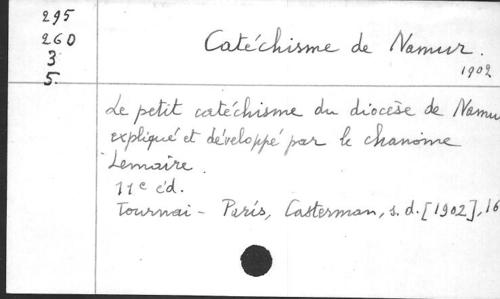 295
260
3
5.
Catéchisme de Namur.
1902
Le petit catéchisme du diocèse de Namu
expliqué et développé par le chanoine
Lemaire.
11e éd.
Tournai - Paris, Casterman, s.d. [1902], 16